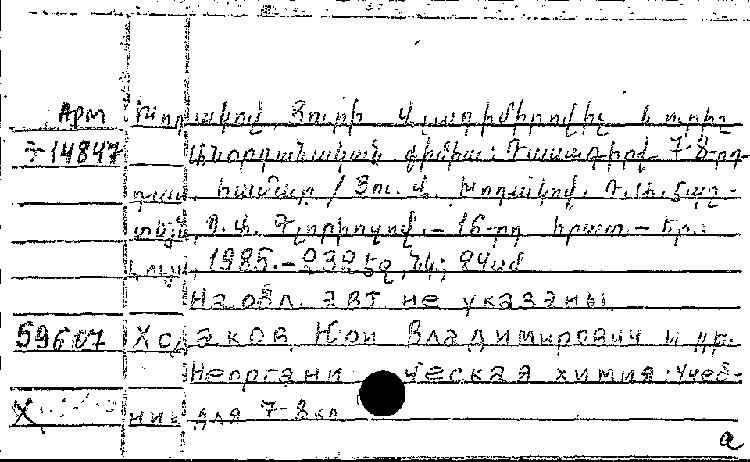 Арм Խոդակով, Յուրի Վլադիմիրովիչ և ուրիշ
14847 Անօրգանական քիմիա: Դասագիրք 7-8-րդ
դաս. համար / Յու. Վ. Խոդակով, Դ. Ա. Էպշ-
տեյն, Պ. Ա. Գլորիոզով. – 16-րդ հրատ. – Եր.:
Լույս, 1985. – 232 էջ, նկ.; 84
На обл. авт. не указаны
59607 Ходаков, Юрий Владимирович и др.
Неорганическая химия: Учеб-
ник для 7-8 кл
X
a